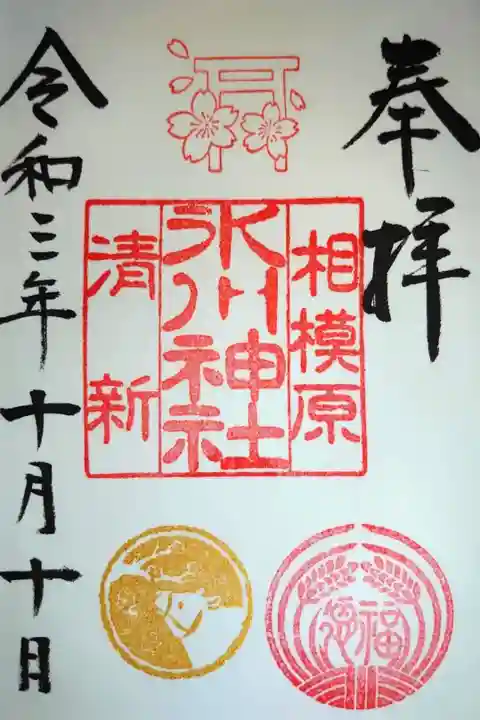 奉拝
相模原
氷川神社
清新
令和三年十月十日
福